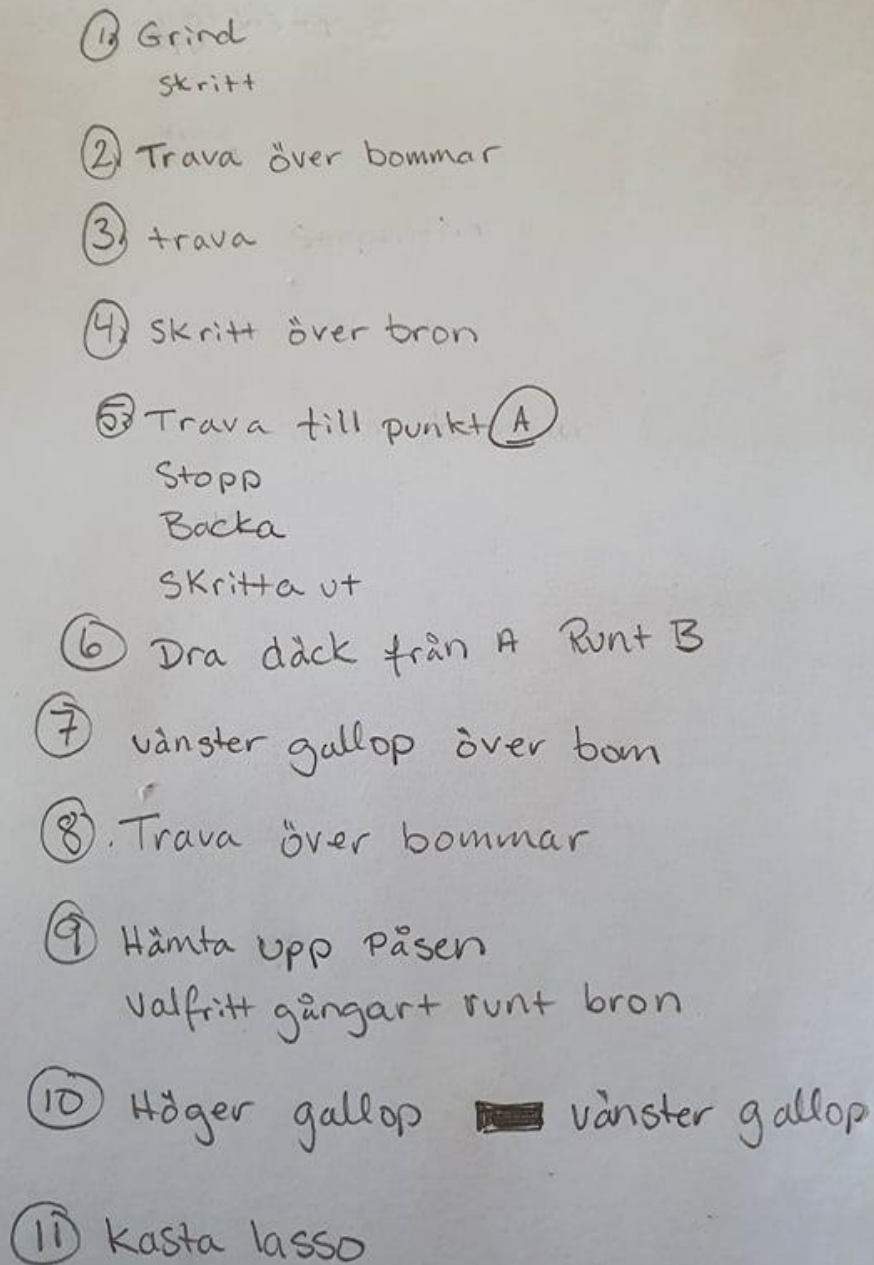 1. Grind
skritt
2. Trava över bommar
3. trava
4. Skritt över bron
5. Trava till punkt A
Stopp
Backa
Skritta ut
6 Dra däck från A Runt B
7 vänster gallop över bom
8. Trava över bommar
9 Hämta upp Påsen
Valfritt gångart runt bron
10 Höger gallop vänster gallop
11 Kasta lasso